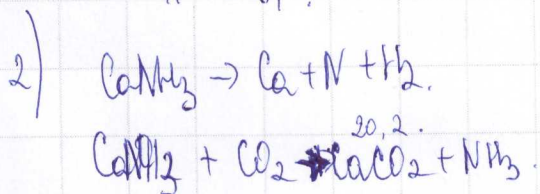 2) CaNH3 → Ca + N + H2.
20,2.
CaNH3 + CO2 → CaCO2 + NH3.